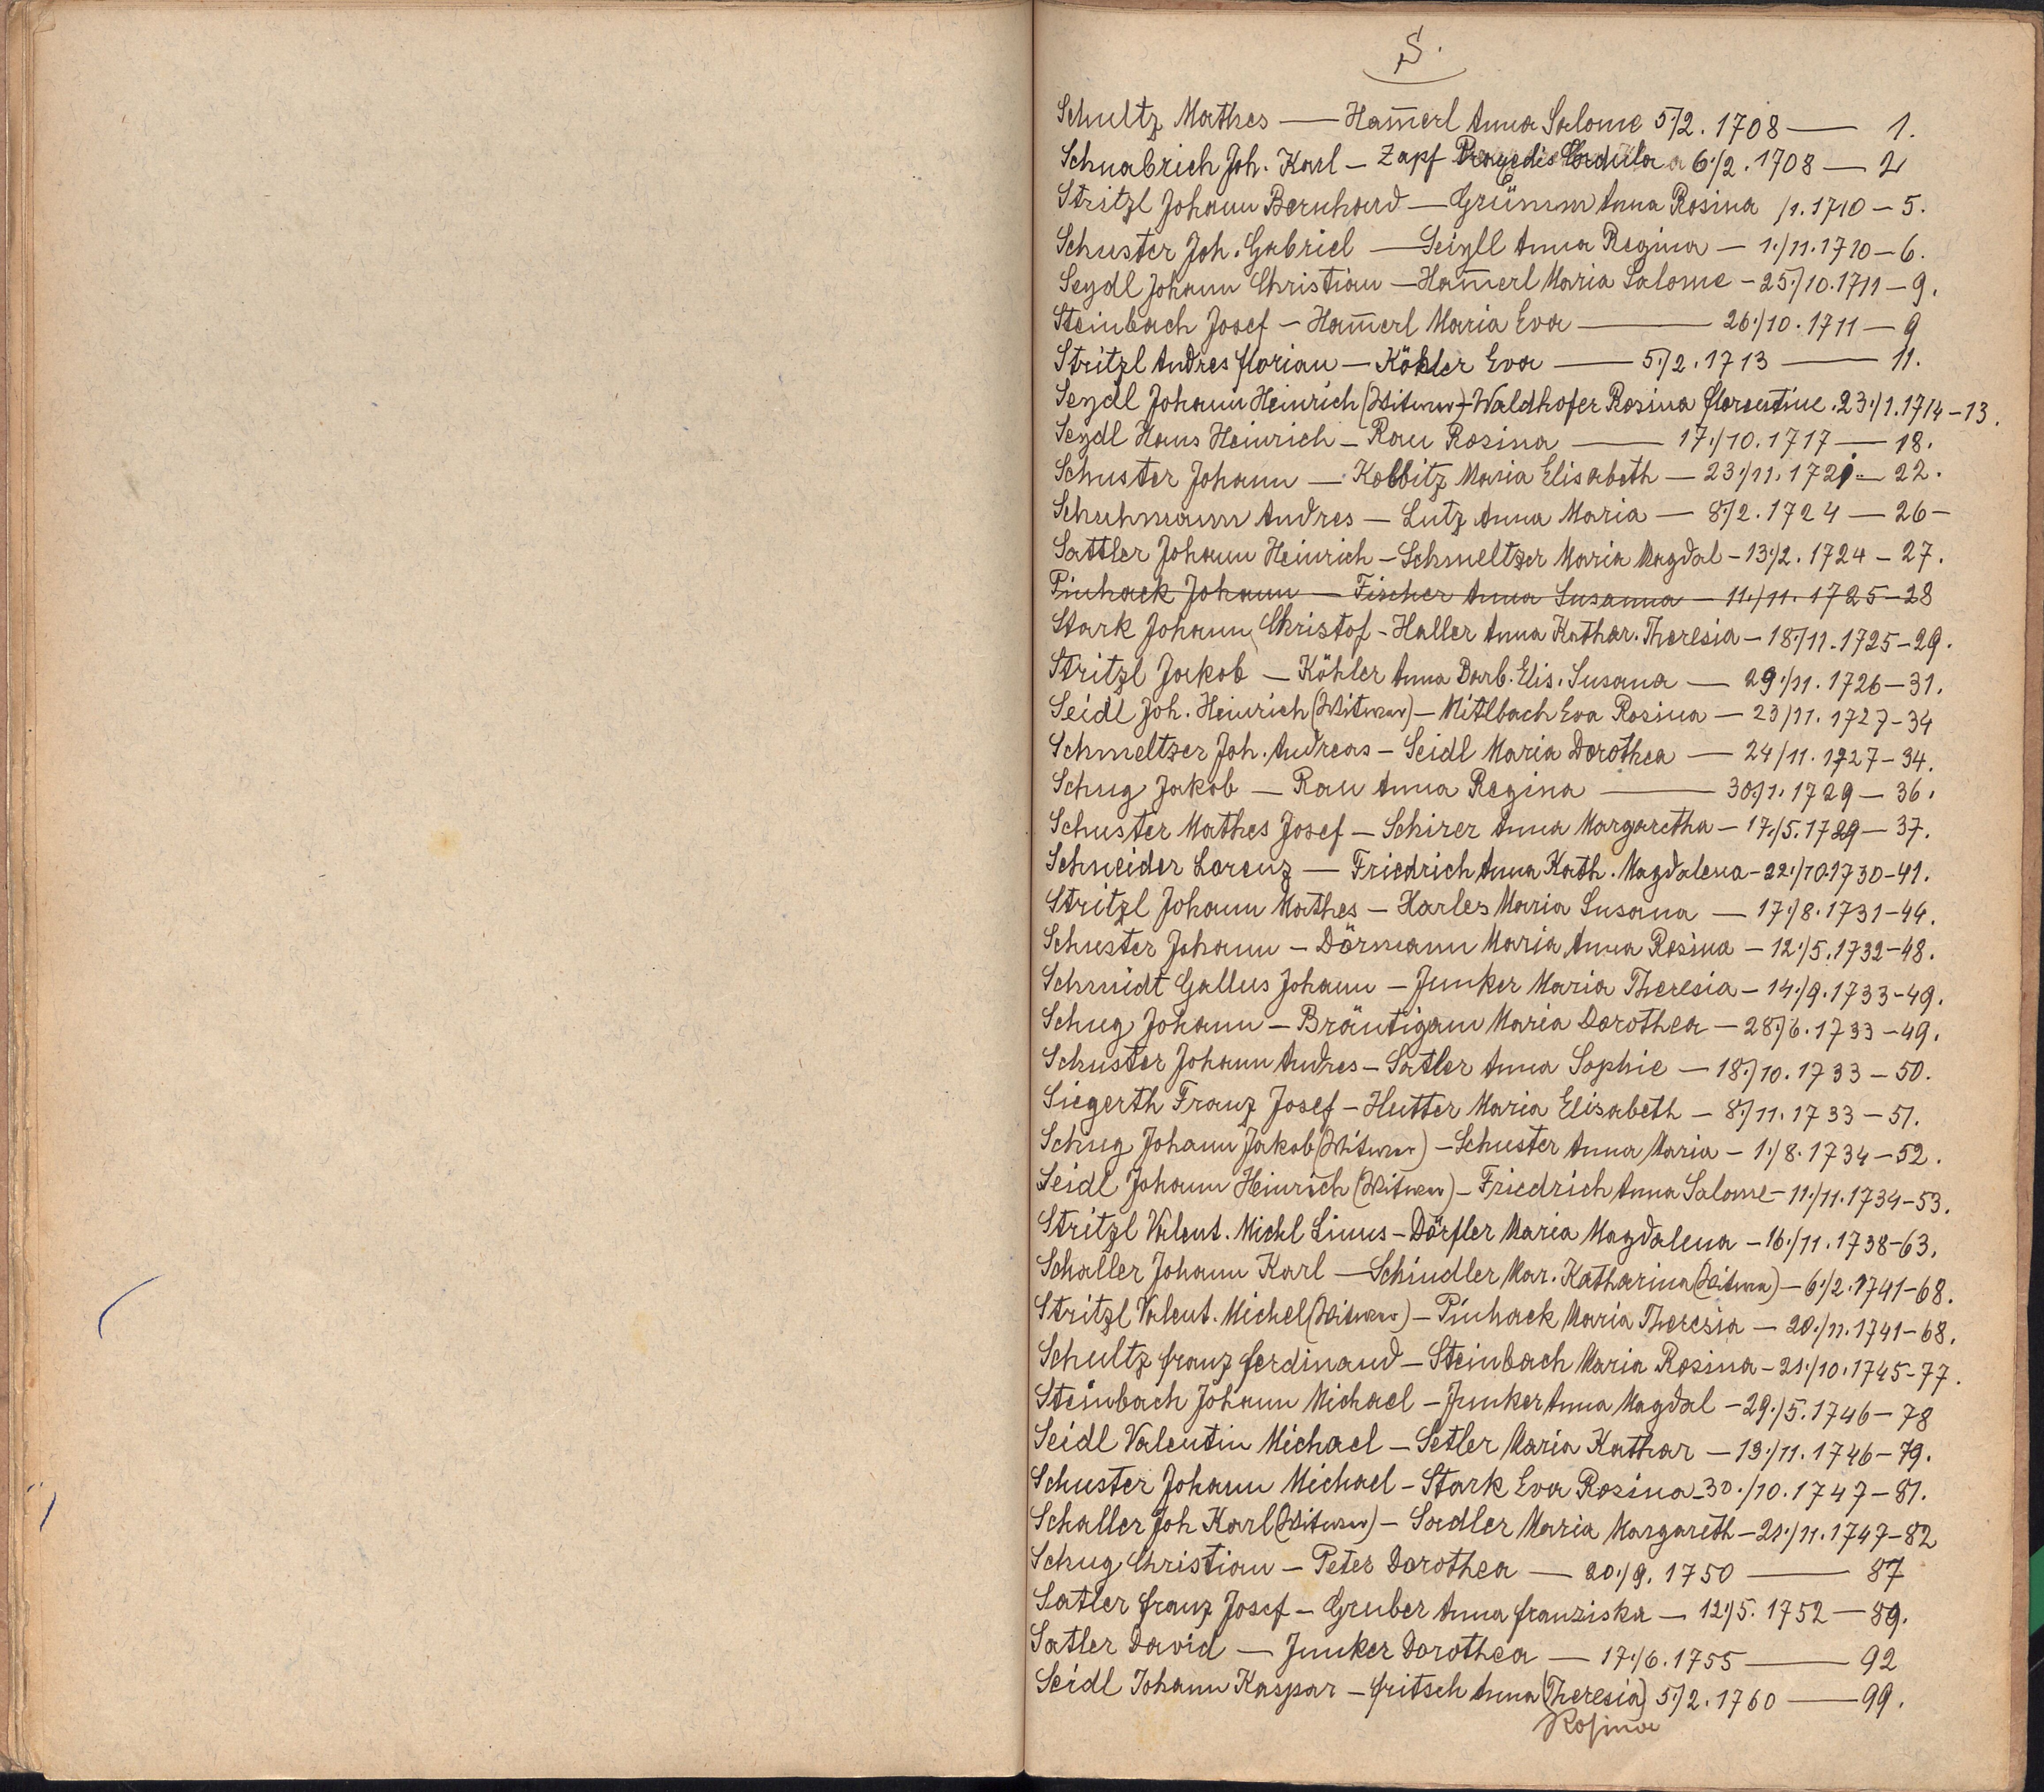 S.
Schultz Mathes — Ham̄erl Anna Salome 5/2. 1708 — 1.
Schnabrich Joh. Karl — Zapf Praxedis Cordula 6./2. 1708 — 2
Stritzl Johann Bernhard — Grümm Anna Rosina /1. 1710 — 5.
Schuster Joh. Gabriel — Seigll Anna Regina — 1./11. 1710 — 6.
Seydl Johann Christian — Ham̄erl Maria Salome — 25./10. 1711 — 9.
Steinbach Josef — Ham̄erl Maria Eva — 26./10. 1711 — 9
Stritzl Andres florian — Köhler Eva — 5./2. 1713 — 11.
Seydl Johann Heinrich (Witwer) — Waldhofer Rosina florentine. 23./1. 1714 — 13.
Seydl Hans Heinrich — Rau Rosina — 17./10. 1717 — 18.
Schuster Johann — Kolbitz Maria Elisabeth — 23./11. 1721 — 22.
Schuhmann Andres — Lutz Anna Maria — 8./2. 1724 — 26 —
Sattler Johann Heinrich — Schmeltzer Maria Magdal — 13./2. 1724 — 27.
Pinhack Johann — Fischer Anna Susanna — 11./11. 1725 — 28
Stark Johann Christof — Haller Anna Kathar. Theresia — 18./11. 1725 — 29.
Stritzl Jakob — Köhler Anna Barb. Elis. Susana — 29./11. 1726 — 31.
Seidl Joh. Heinrich (Witwer) — Mitlbach Eva Rosina — 23/11. 1727 — 34
Schmeltzer Joh. Andreas — Seidl Maria Dorothea — 24/11. 1727 — 34.
Schug Jakob — Rau Anna Regina — 30./1. 1729 — 36.
Schuster Mathes Josef — Schirer Anna Margaretha — 17./5. 1729 — 37.
Schneider Lorenz — Friedrich Anna Kath. Magdalena — 22./10. 1730 — 41.
Stritzl Johann Mathes — Harles Maria Susana — 17./8. 1731 — 44.
Schuster Johann — Dörmann Maria Anna Rosina — 12./5. 1732 — 48.
Schmidt Gallus Johann — Junker Maria Theresia — 14./9. 1733 — 49.
Schug Johann — Bräutigam Maria Dorothea — 28./6. 1733 — 49.
Schuster Johann Andres — Satler Anna Sophie — 18./10. 1733 — 50.
Siegerth Franz Josef — Hutter Maria Elisabeth — 8./11. 1733 — 51.
Schug Johann Jakob (Witwer) — Schuster Anna Maria — 1./8. 1734 — 52.
Seidl Johann Heinrich (Witwer) — Friedrich Anna Salome — 11./11. 1734 — 53.
Stritzl Valent. Michl Linus — Dörfler Maria Magdalena — 16./11. 1738 — 63.
Schaller Johann Karl — Schindler Mar. Katharina (Witwe) — 6./2. 1741 — 68.
Stritzl Valent. Michel (Witwer) — Pinhack Maria Theresia — 20./11. 1741 — 68.
Schultz franz ferdinand — Steinbach Maria Rosina — 21./10. 1745 — 77.
Steinbach Johann Michael — Junker Anna Magdal — 29./5. 1746 — 78
Seidl Valentin Michael — Setler Maria Kathar — 13./11. 1746 — 79.
Schuster Johann Michael — Stark Eva Rosina — 30./10. 1747 — 81.
Schaller Joh Karl (Witwer) — Sadler Maria Margareth — 21./11. 1747 — 82
Schug Christian — Peter Dorothea — 20./9. 1750 — 87
Satler franz Josef — Gruber Anna franziska — 12./5. 1752 — 89.
Satler David — Junker Dorothea — 17./6. 1755 — 92
Seidl Johann Kaspar — fritsch Anna (Theresia) 5./2. 1760 — 99.
Rosina